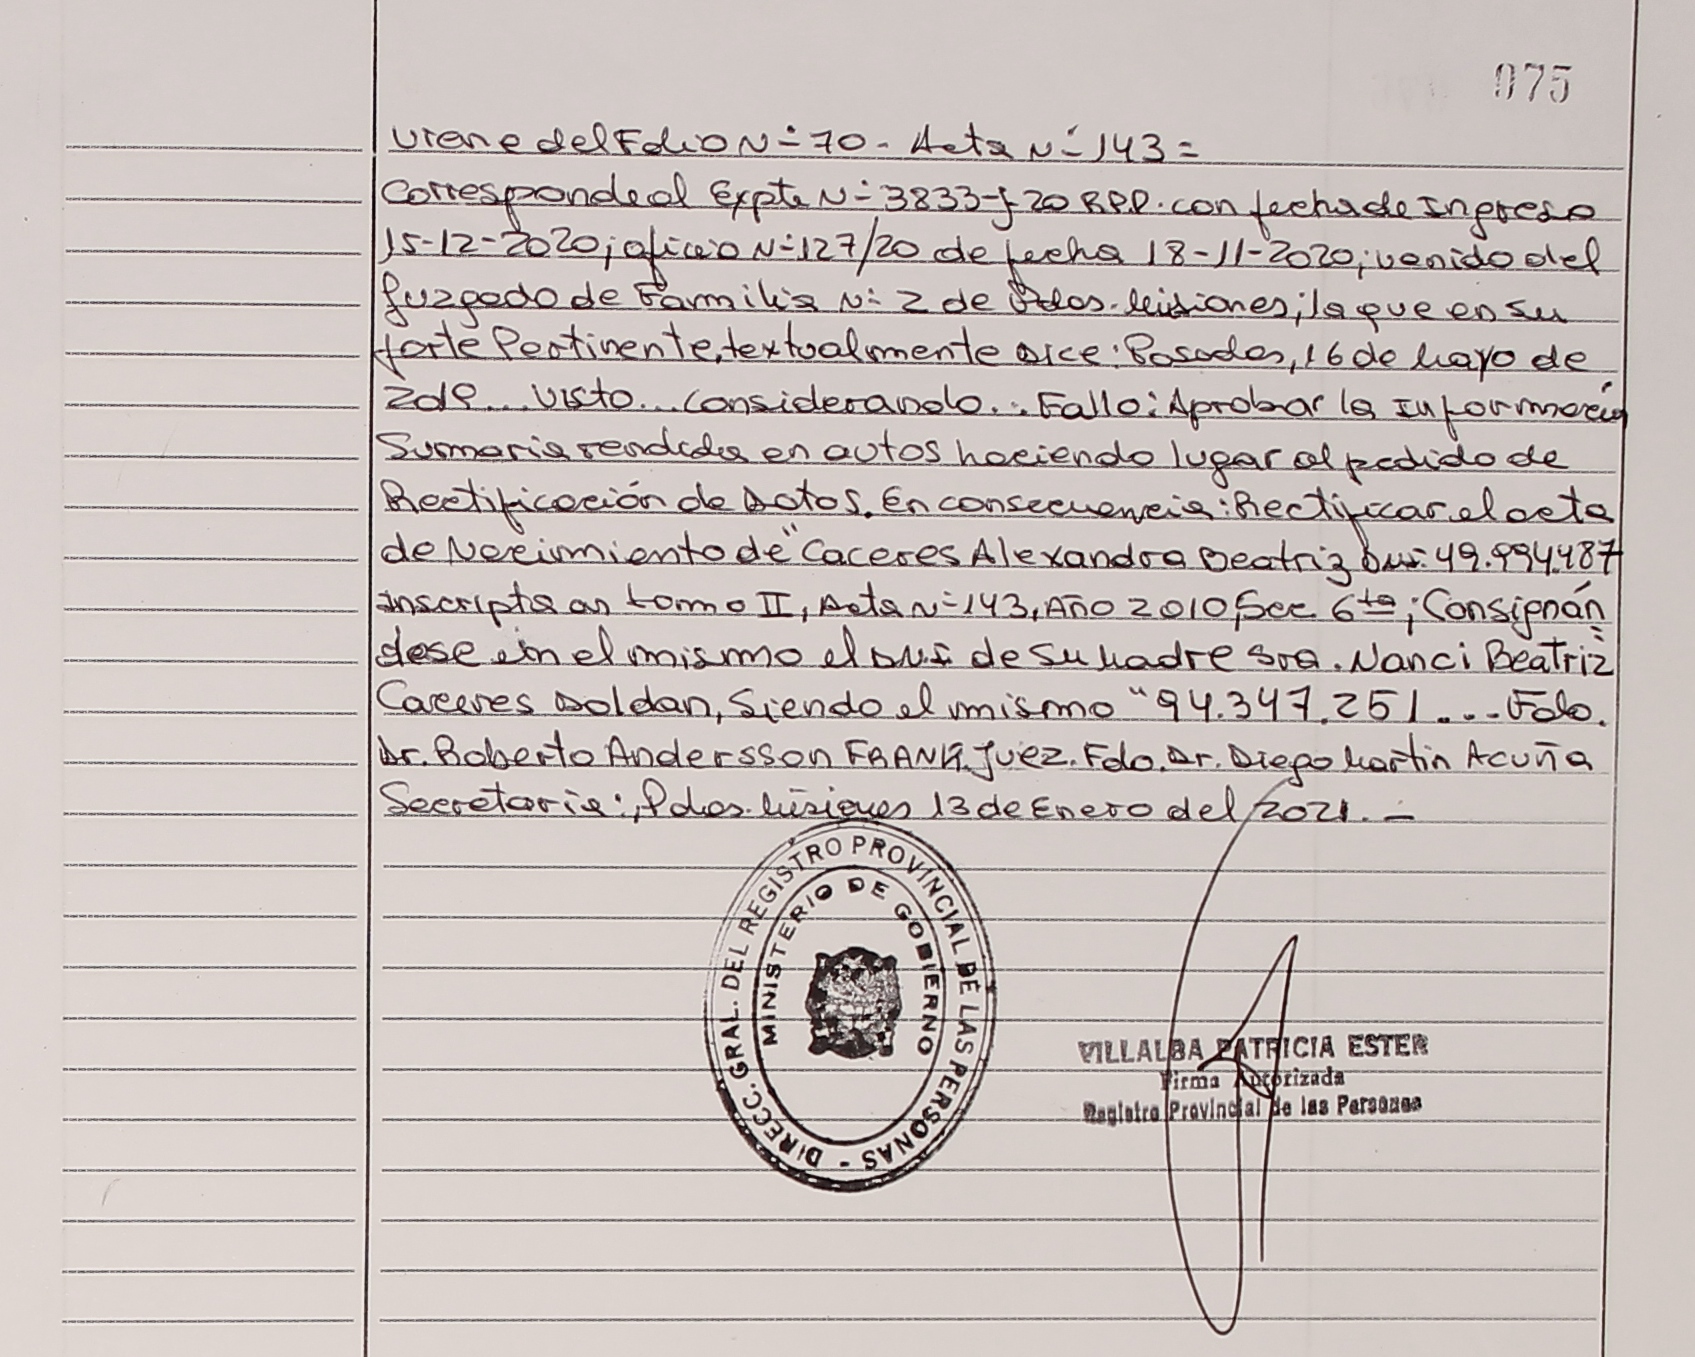 075
Viene del Folio N° 70 - Acta N° 143 =
Corresponde al Expte N° 3833-J-20 R.P.P. con fecha de Ingreso
15-12-2020; oficio N° 127/20 de fecha 18-11-2020; venido del
Juzgado de Familia N° 2 de Pdas. Misiones; la que en su
parte Pertinente, textualmente dice: Posadas, 16 de Mayo de
... Visto... Considerando... Fallo: Aprobar la Informació
Sumaria rendida en autos haciendo lugar al pedido de
Rectificación de Datos. En consecuencia: Rectificar el acta
de Nacimiento de "Caceres Alexandra Beatriz DNI: 49.994.487
inscripta en tomo II, Acta N° 143, Año 2010, Sec 6ta; Consignán
dose en el mismo el DNI de su Madre Sra. Nanci Beatriz
Caceres Doldan, Siendo el mismo "94.347.251... Fdo.
Dr. Roberto Andersson FRANK. Juez. Fdo. Dr. Diego Martin Acuña
Secretaria:, Pdas. Misiones 13 de Enero del 2021. -
DIRECC. GRAL. DEL REGISTRO PROVINCIAL DE LAS PERSONAS -
MINISTERIO DE GOBIERNO
VILLALBA PATRICIA ESTER
Firma Autorizada
Registro Provincial de las Personas